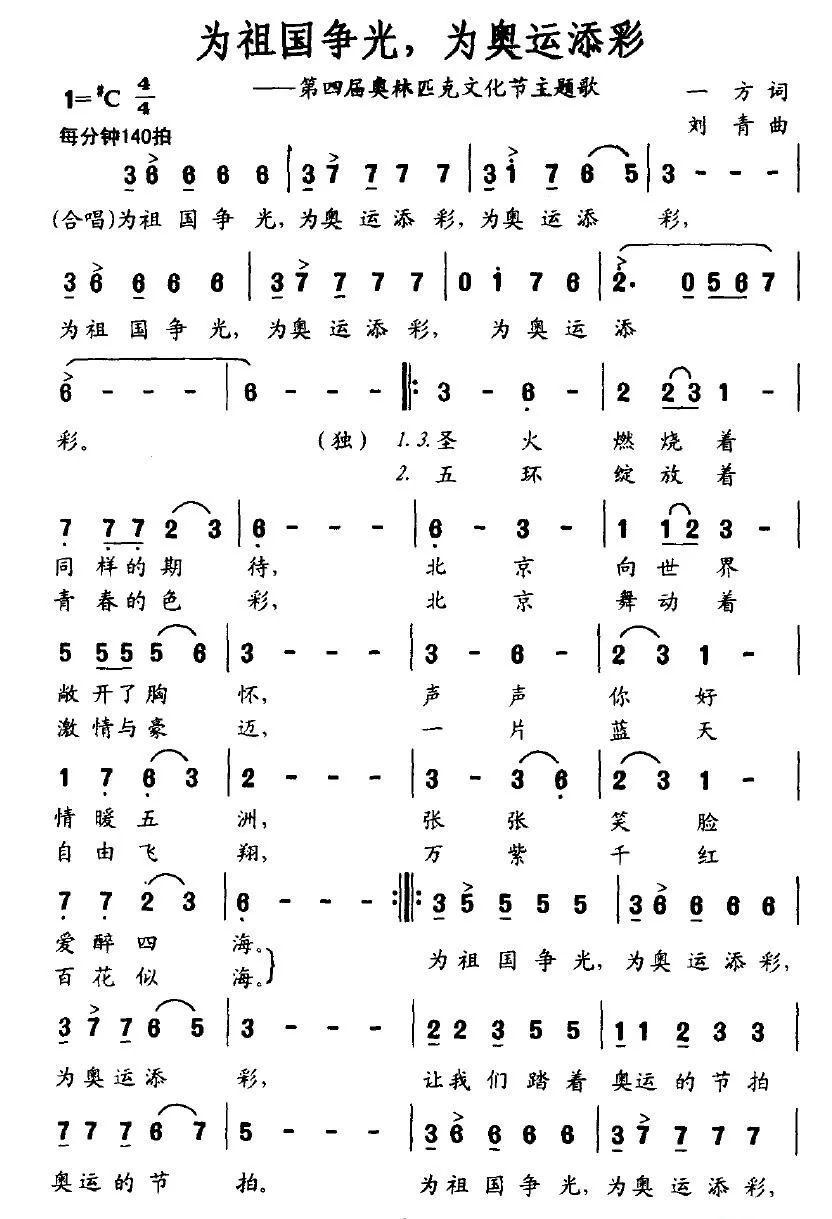 为祖国争光，为奥运添彩
——第四届奥林匹克文化节主题歌
1=#C 4/4
一方词
每分钟140拍
刘青曲
3 6 6 6 6 | 3 7 7 7 7 | 3 1 7 6 5 | 3 - - - |
(合唱)为祖国争光,为奥运添彩,为奥运添彩,
3 6 6 6 6 | 3 7 7 7 7 | 0 1 7 6 | 2· 0 5 6 7 |
为祖国争光,为奥运添彩, 为奥运添
6 - - - | 6 - - - ‖: 3 - 6 - | 2 2 3 1 - |
彩。 (独) 1.3.圣火燃烧着
2.五环绽放着
7 7 7 2 3 | 6 - - - | 6 - 3 - | 1 1 2 3 - |
同样的期待, 北京向世界
青春的色彩, 北京舞动着
5 5 5 5 6 | 3 - - - | 3 - 6 - | 2 3 1 - |
敞开了胸怀, 声声你好
激情与豪迈, 一片蓝天
1 7 6 3 | 2 - - - | 3 - 3 6 | 2 3 1 - |
情暖五洲, 张张笑脸
自由飞翔, 万紫千红
7 7 2 3 | 6 - - - :‖: 3 5 5 5 5 | 3 6 6 6 6 |
爱醉四海。
为祖国争光,为奥运添彩,
百花似海。
3 7 7 6 5 | 3 - - - | 2 2 3 5 5 | 1 1 2 3 3 |
为奥运添彩, 让我们踏着奥运的节拍
7 7 7 6 7 | 5 - - - | 3 6 6 6 6 | 3 7 7 7 7 |
奥运的节拍。 为祖国争光,为奥运添彩,